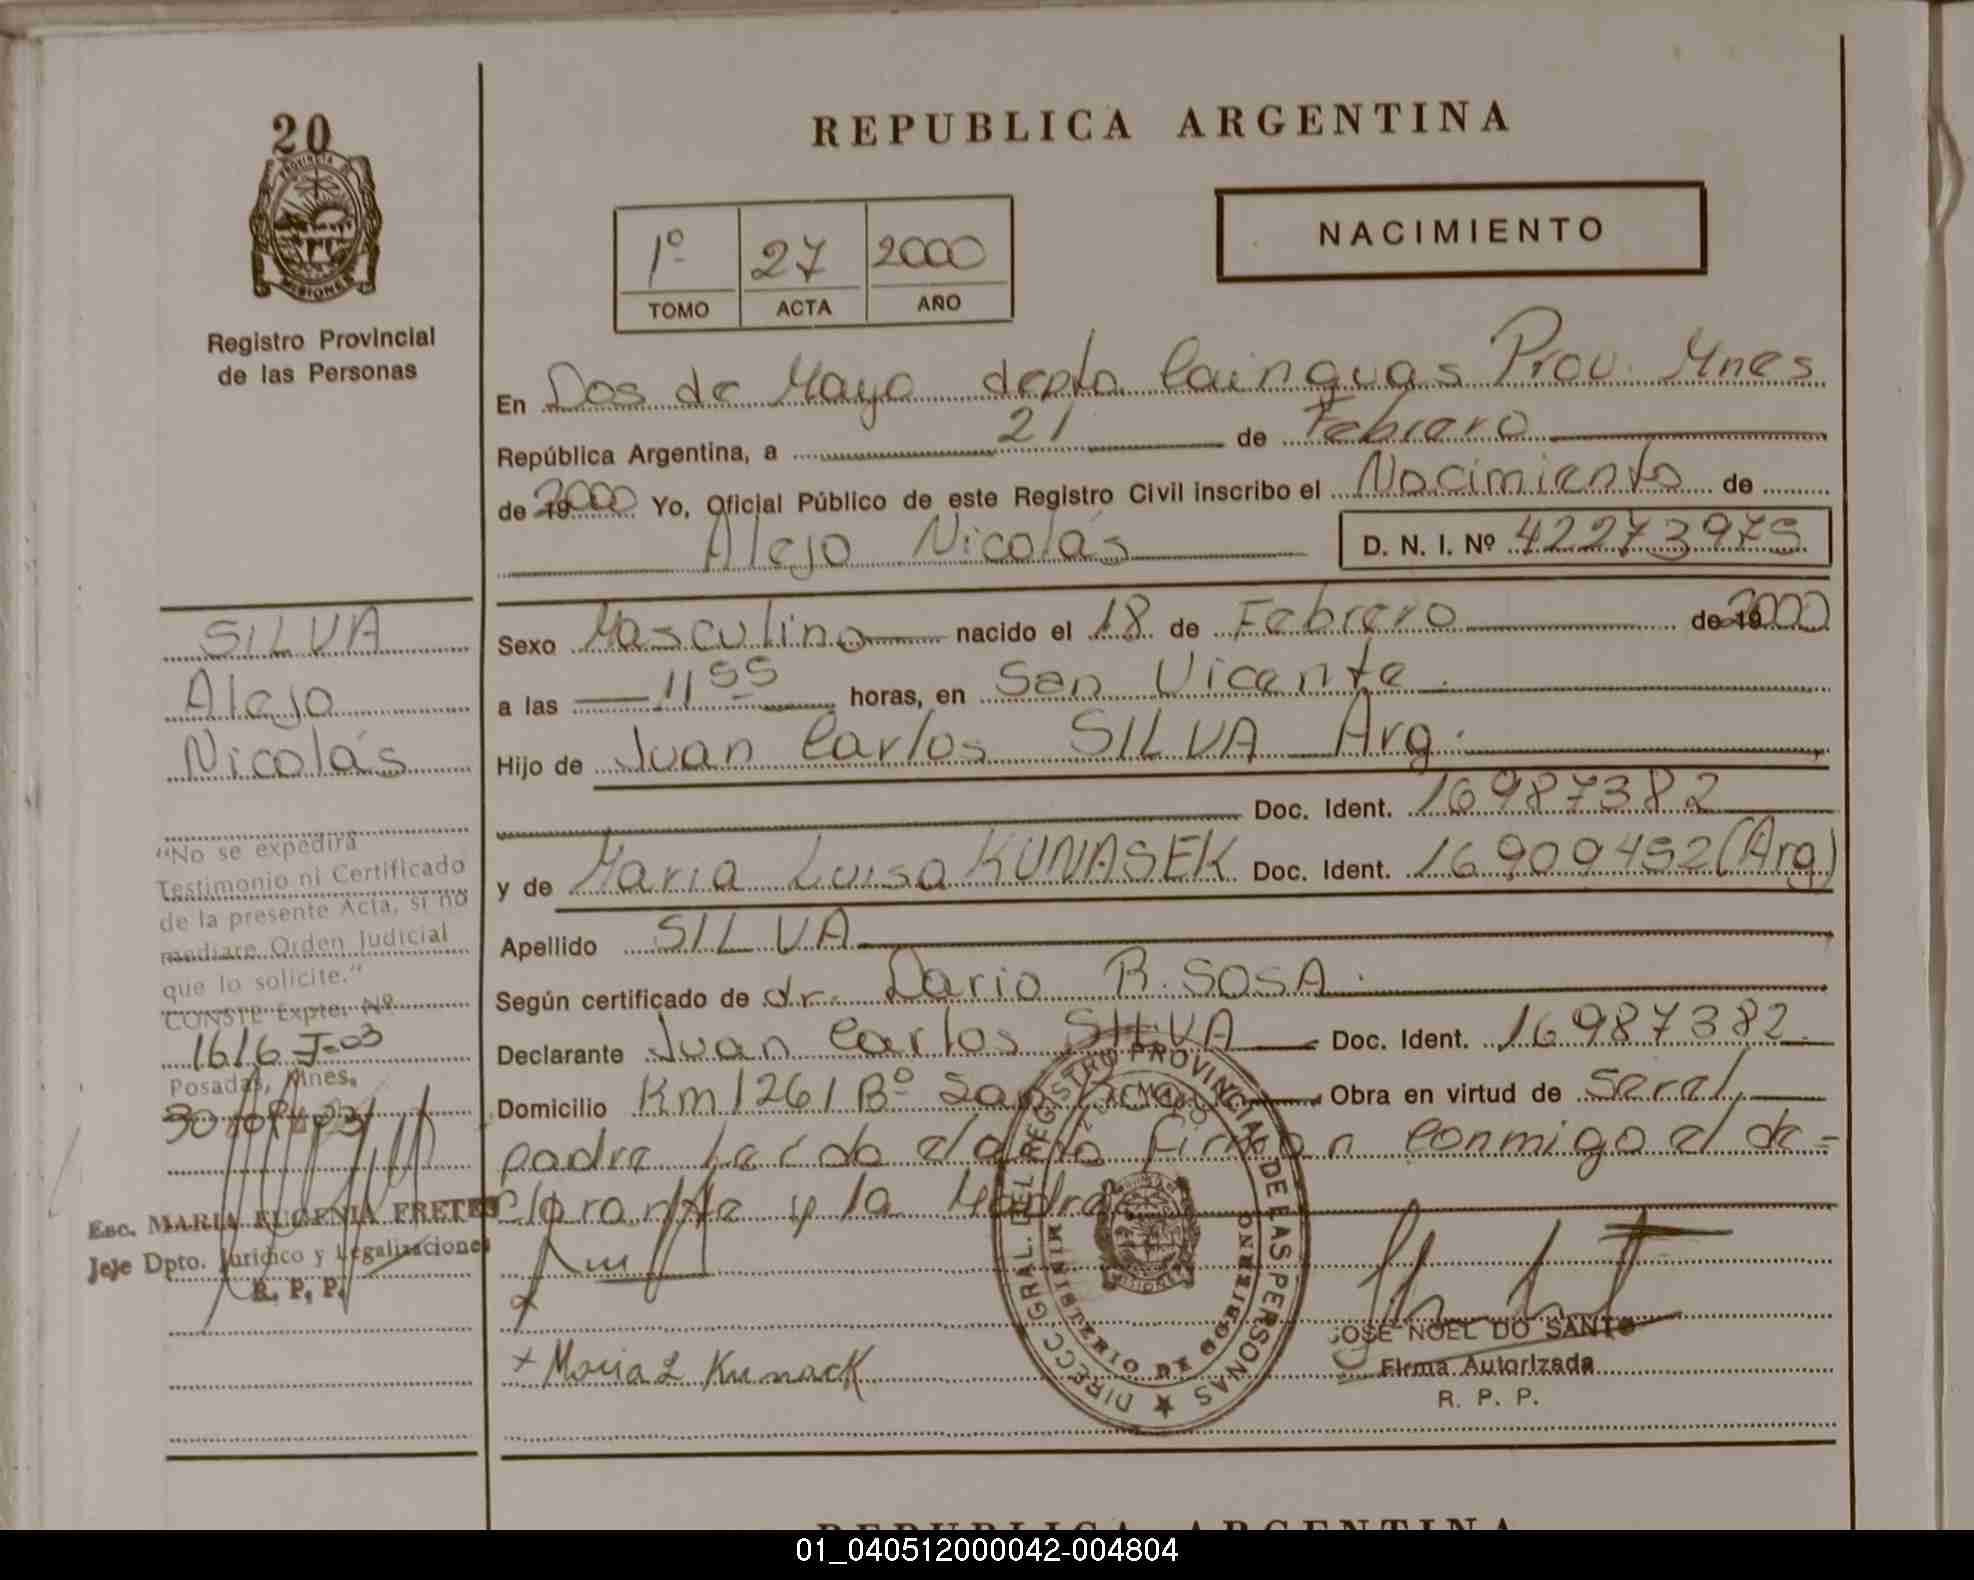 20
PROVINCIA DE
MISIONES
Registro Provincial
de las Personas
REPUBLICA ARGENTINA
1º 27 2000
TOMO ACTA AÑO
NACIMIENTO
En Dos de Mayo depto Cainguas Prov. Mnes
República Argentina, a 21 de Febrero
de 2000 Yo, Oficial Público de este Registro Civil inscribo el Nacimiento de
Alejo Nicolás D. N. I. Nº 42273975
Sexo Masculino nacido el 18 de Febrero de 2000
a las 11 55 horas, en San Vicente.
Hijo de Juan Carlos SILVA Arg.
Doc. Ident. 16987382
y de Maria Luisa KUNASEK Doc. Ident. 16909452 (Arg)
Apellido SILVA
Según certificado de dr. Dario R. SOSA.
Declarante Juan Carlos SILVA Doc. Ident. 16987382
Domicilio Km 1261 Bº San Obra en virtud de ser el
padre Leída el acta firman conmigo el de=
clarante y la Madre
SILVA
Alejo
Nicolás
"No se expedirá
Testimonio ni Certificado
de la presente Acta, si no
mediare Orden Judicial
que lo solicite."
CONSTE Expte. Nº
1616 J-03
Posadas, Mnes.
Esc. MARIA EUGENIA FRETES
Jeje Dpto. Jurídico y Legalizaciones
R. P. P.
+ Maria L Kunasek
DIRECC GRAL. DEL REGISTRO PROVINCIAL DE LAS PERSONAS
MINISTERIO DE GOBIERNO
JOSE NOEL DO SANTO
Firma Autorizada
R. P. P.
REPUBLICA ARGENTINA
01_040512000042-004804